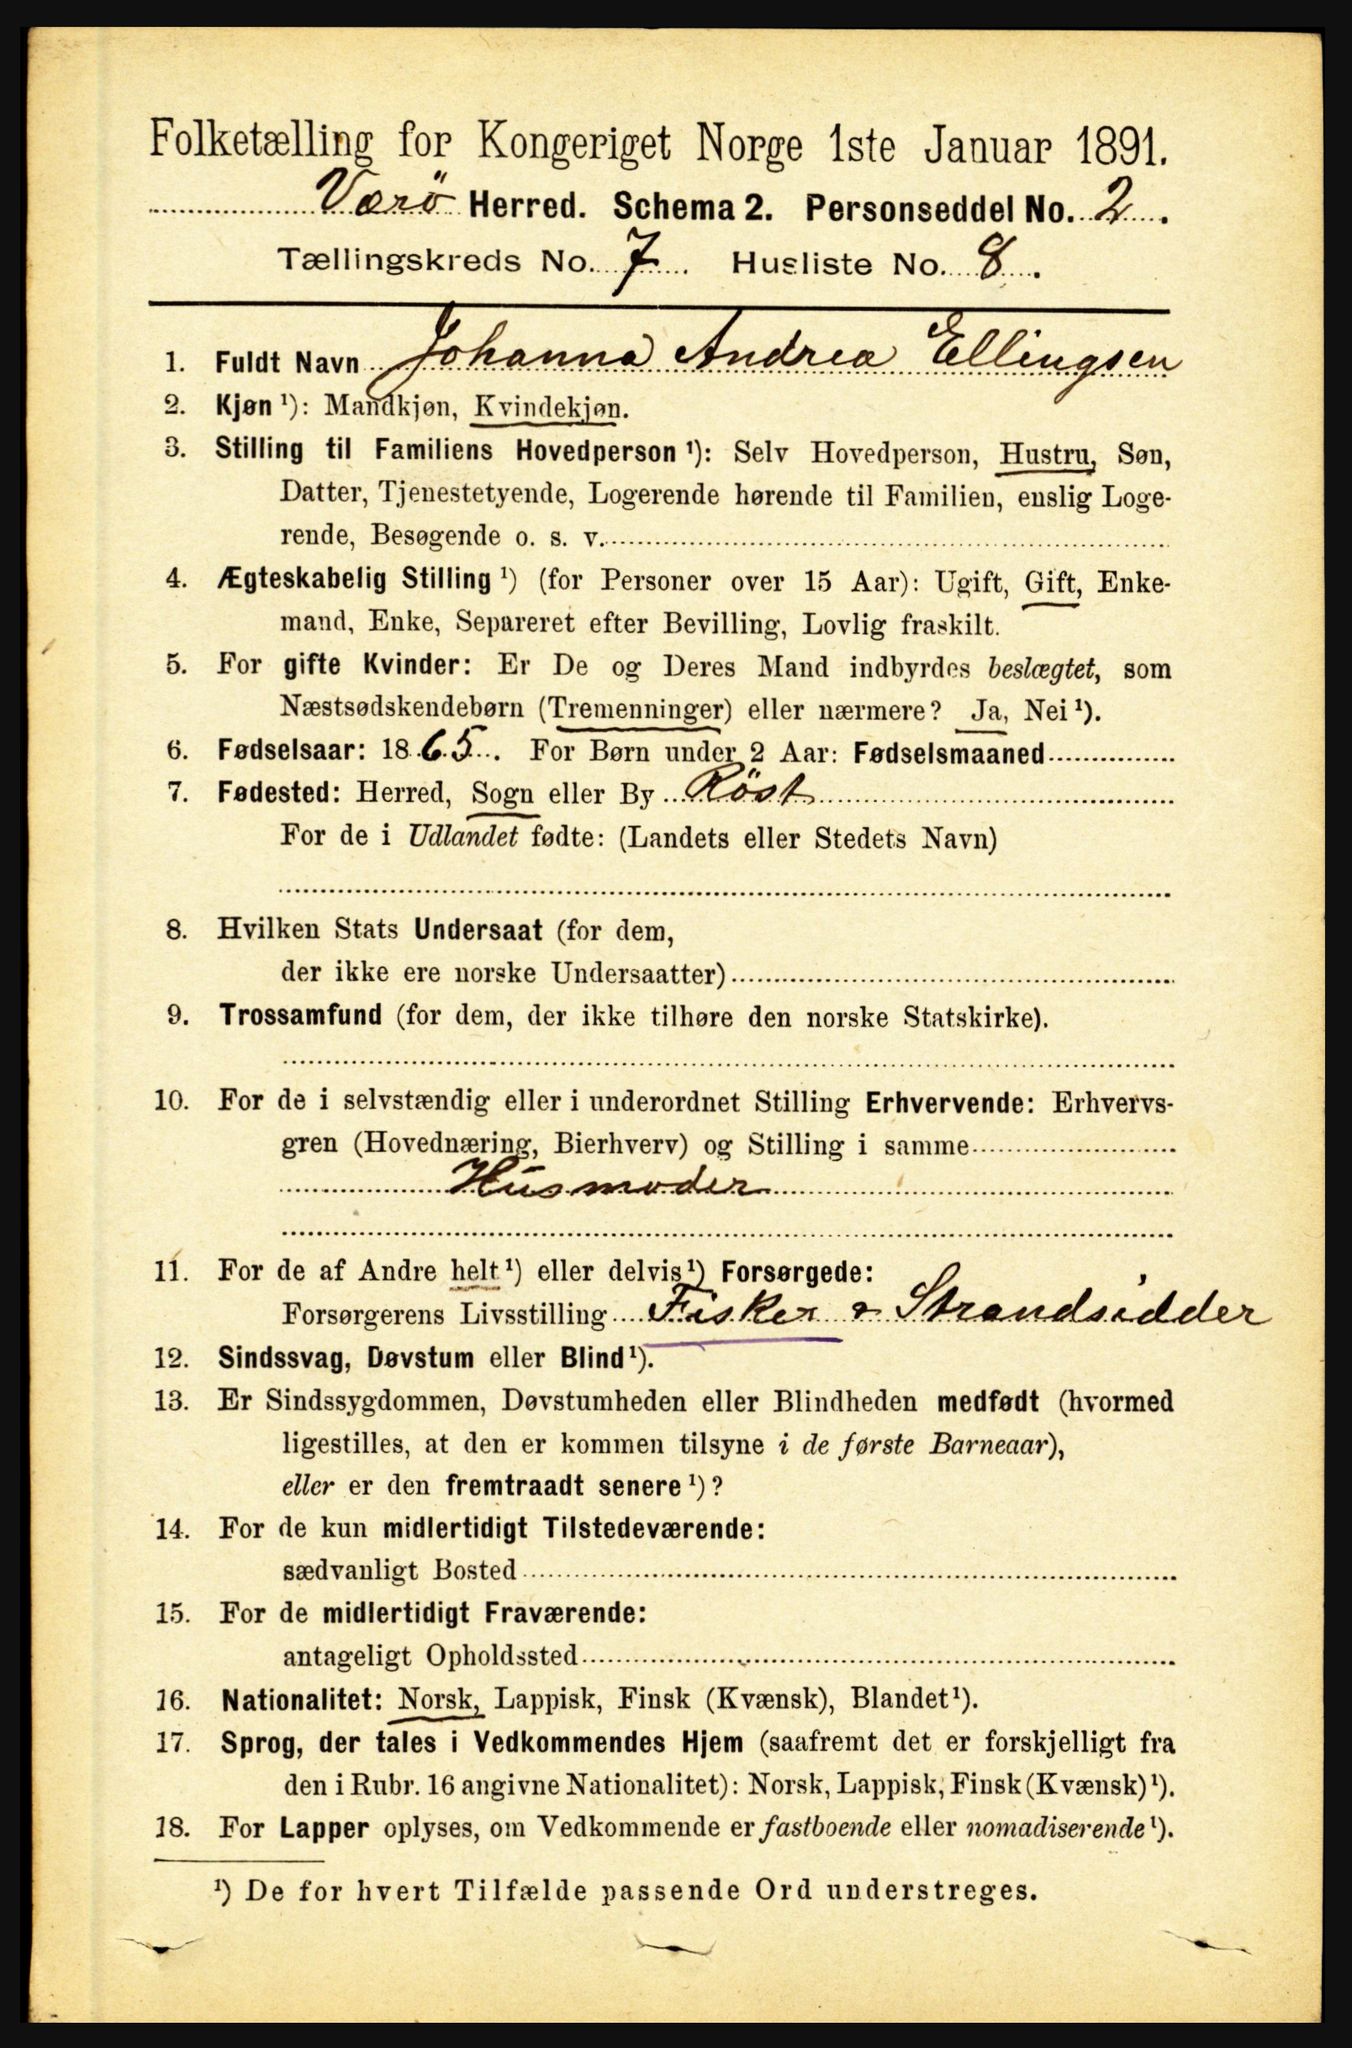 Folketælling for Kongeriget Norge 1ste Januar 1891.
Værö Herred. Schema 2. Personseddel No. 2.
Tællingskreds No. 7. Husliste No. 8.
1. Fuldt Navn Johanna Andrea Ellingsen
2. Kjøn ¹): Mandkjøn, Kvindekjøn.
3. Stilling til Familiens Hovedperson ¹): Selv Hovedperson, Hustru, Søn,
Datter, Tjenestetyende, Logerende hørende til Familien, enslig Loge-
rende, Besøgende o. s. v.
4. Ægteskabelig Stilling ¹) (for Personer over 15 Aar): Ugift, Gift, Enke-
mand, Enke, Separeret efter Bevilling, Lovlig fraskilt.
5. For gifte Kvinder: Er De og Deres Mand indbyrdes beslægtet, som
Næstsødskendebørn (Tremenninger) eller nærmere? Ja, Nei ¹).
6. Fødselsaar: 1865. For Børn under 2 Aar: Fødselsmaaned
7. Fødested: Herred, Sogn eller By Röst
For de i Udlandet fødte: (Landets eller Stedets Navn)
8. Hvilken Stats Undersaat (for dem,
der ikke ere norske Undersaatter)
9. Trossamfund (for dem, der ikke tilhøre den norske Statskirke).
10. For de i selvstændig eller i underordnet Stilling Erhvervende: Erhvervs-
gren (Hovednæring, Bierhverv) og Stilling i samme
Husmoder
11. For de af Andre helt ¹) eller delvis ¹) Forsørgede:
Forsørgerens Livsstilling Fisker & Strandsidder
12. Sindssvag, Døvstum eller Blind ¹).
13. Er Sindssygdommen, Døvstumheden eller Blindheden medfødt (hvormed
ligestilles, at den er kommen tilsyne i de første Barneaar),
eller er den fremtraadt senere ¹)?
14. For de kun midlertidigt Tilstedeværende:
sædvanligt Bosted
15. For de midlertidigt Fraværende:
antageligt Opholdssted
16. Nationalitet: Norsk, Lappisk, Finsk (Kvænsk), Blandet ¹).
17. Sprog, der tales i Vedkommendes Hjem (saafremt det er forskjelligt fra
den i Rubr. 16 angivne Nationalitet): Norsk, Lappisk, Finsk (Kvænsk) ¹).
18. For Lapper oplyses, om Vedkommende er fastboende eller nomadiserende ¹).
¹) De for hvert Tilfælde passende Ord understreges.